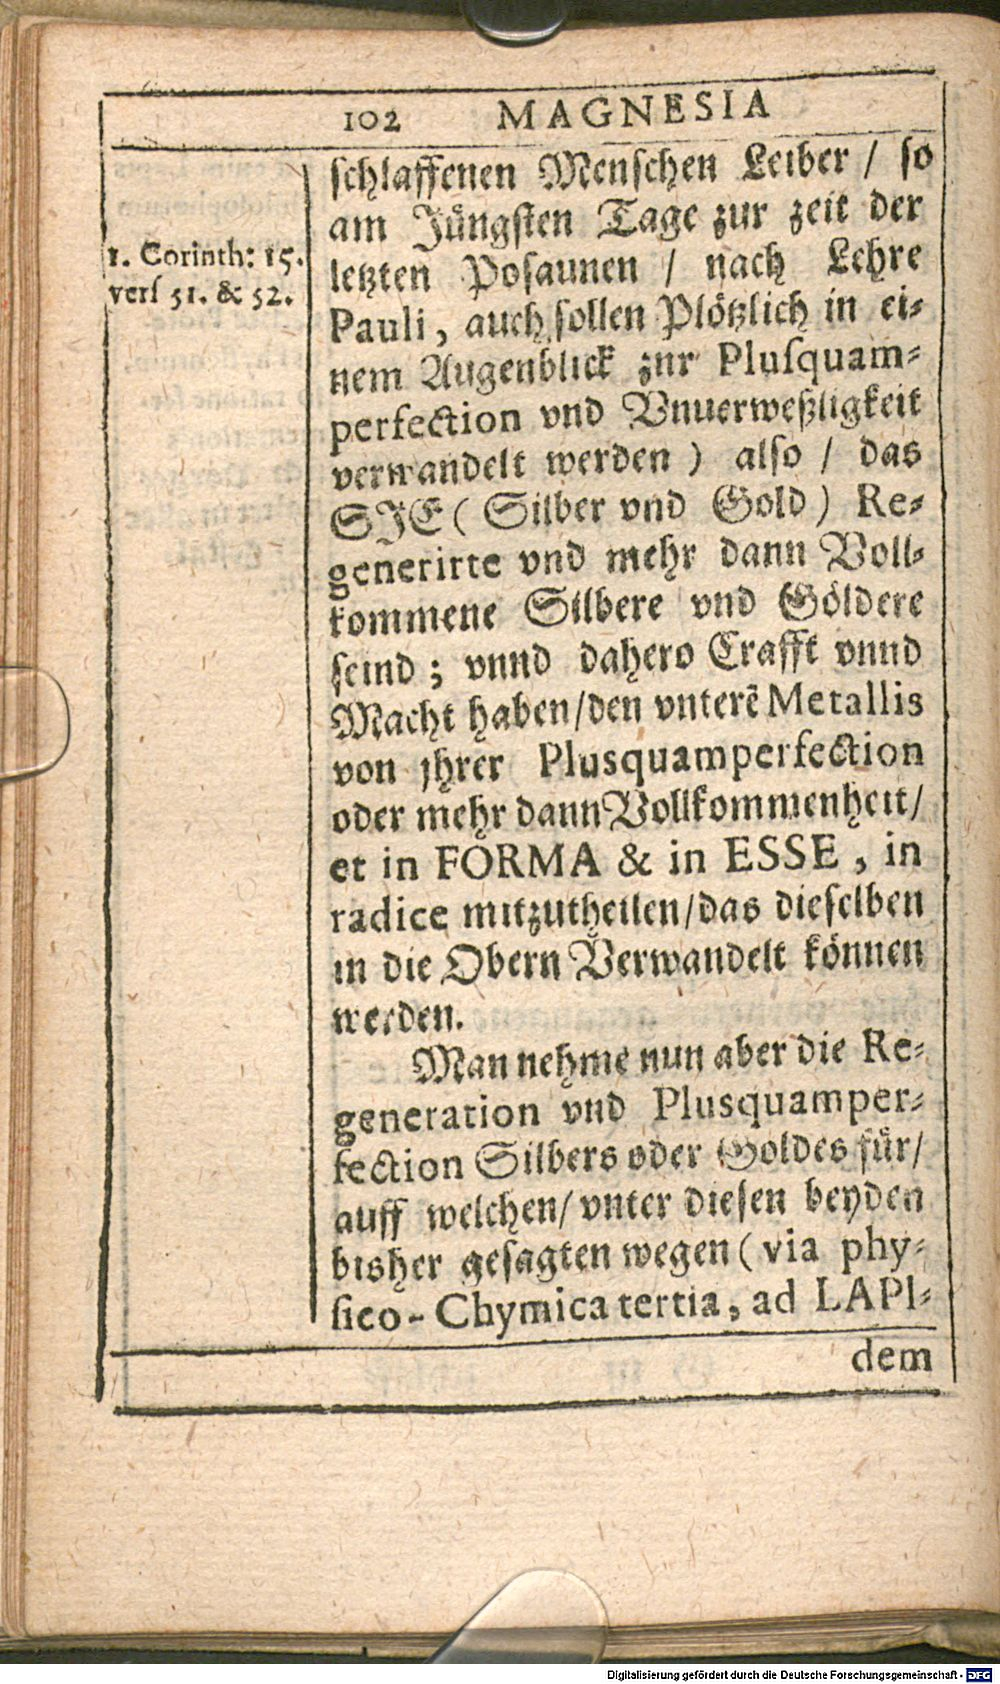 102 MAGNESIA
schlaffenen Menschen Leiber / so
am Jüngsten Tage zur zeit der
1. Corinth: 15.
vers 51. & 52.
letzten Posaunen / nach Lehre
Pauli, auch sollen Plötzlich in ei-
nem Augenblick zur Plusquam-
perfection vnd Vnuerweßligkeit
verwandelt werden ) also / das
SIE ( Silber vnd Gold ) Re-
generirte vnd mehr dann Voll-
kommene Silbere vnd Göldere
seind ; vnnd dahero Crafft vnnd
Macht haben/den vnterē Metallis
von jhrer Plusquamperfection
oder mehr dann Vollkommenheit/
et in FORMA & in ESSE, in
radice mitzutheilen/das dieselben
in die Obern Verwandelt können
werden.
Man nehme nun aber die Re-
generation vnd Plusquamper-
fection Silbers oder Goldes für/
auff welchen/ vnter diesen beyden
bisher gesagten wegen ( via phy-
sico-Chymica tertia, ad LAPI-
dem
Digitalisierung gefördert durch die Deutsche Forschungsgemeinschaft - DFG